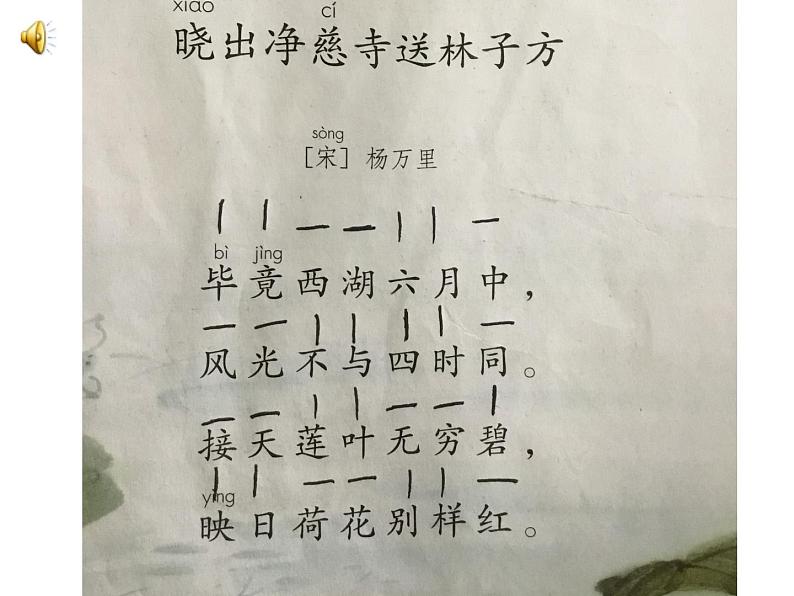 xiǎo cí
晓出净慈寺送林子方
sòng
[宋] 杨万里
bì jìng
毕竟西湖六月中，
风光不与四时同。
接天莲叶无穷碧，
yìng
映日荷花别样红。